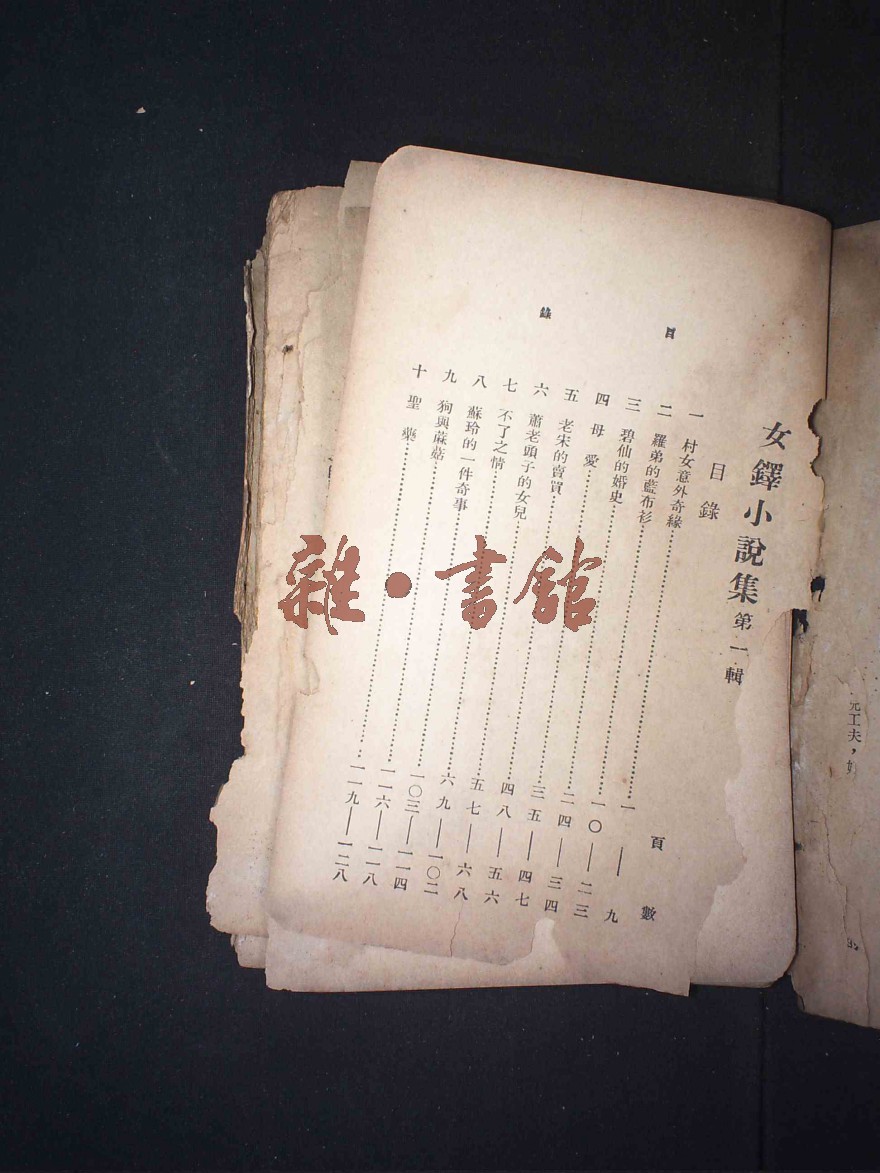 女鐸小說集 第一輯
目錄
頁數
一 村女意外奇緣………一——九
二 羅弟的藍布衫………一〇——二三
三 碧仙的婚史………二四——三四
四 母愛………三五——四七
五 老宋的賣買………四八——五六
六 蕭老頭子的女兒………五七——六八
七 不了之情………六九——一〇二
八 蘇玲的一件奇事………一〇三——一一四
九 狗與蔴菇………一一六——一一八
十 聖藥………一一九——一二八
目錄
工夫，
雜·書館